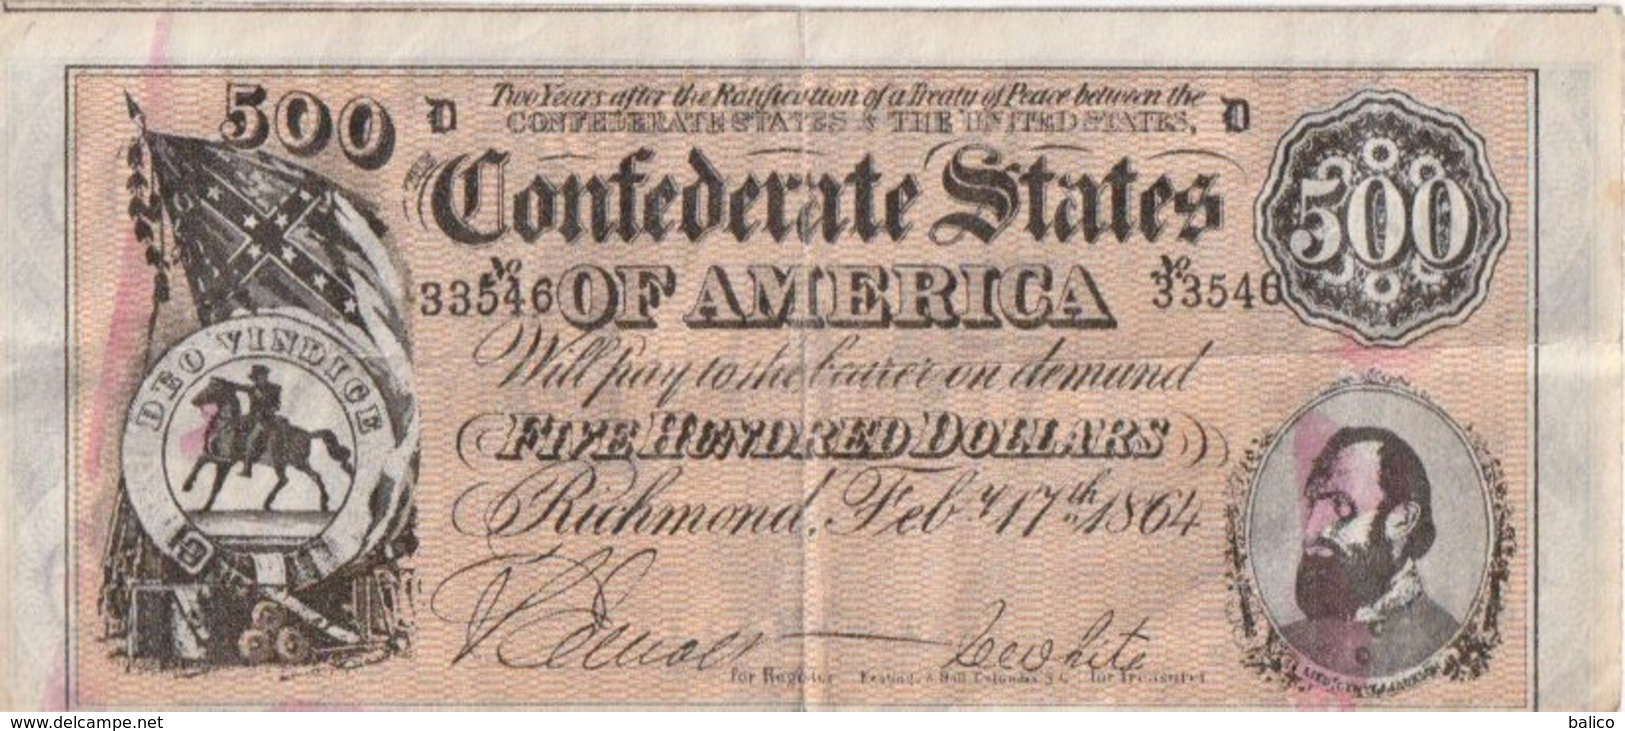 500 D Two Years after the Ratification of a Treaty of Peace between the D
CONFEDERATE STATES & THE UNITED STATES,
Confederate States
500
No 33546 OF AMERICA No 33546
Will pay to the bearer on demand
DEO VINDICE
FIVE HUNDRED DOLLARS
Richmond, Feby 17th 1864
White
for Register Keating & Ball Columbia S.C. for Treasurer
LIEUT. GEN'L T.J. JACKSON
www.delcampe.net
balico